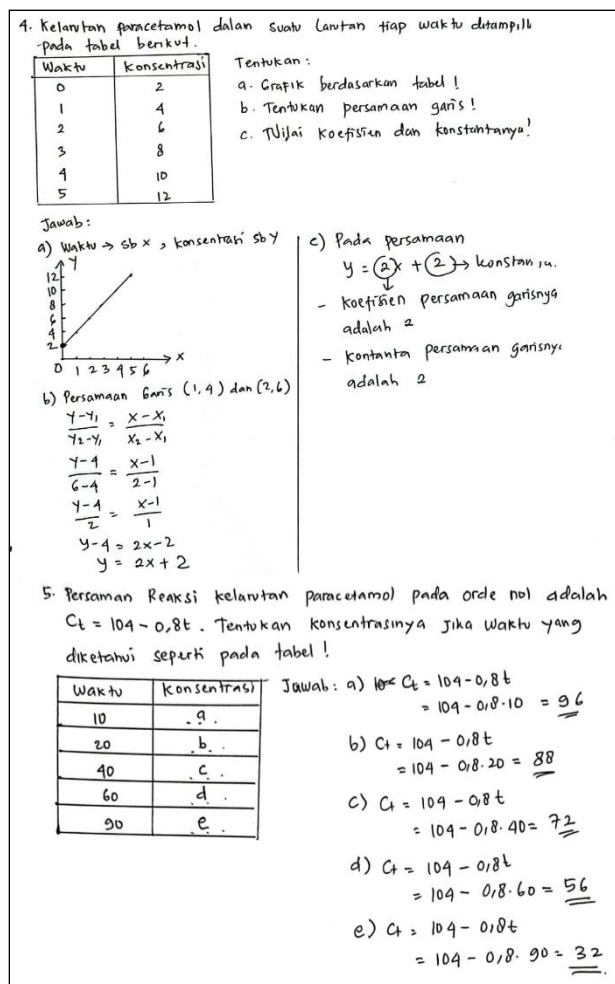 4. Kelarutan paracetamol dalan suatu larutan tiap waktu ditampilk
pada tabel berikut.
Waktu Konsentrasi
0 2
1 4
2 6
3 8
4 10
5 12
Tentukan :
a. Grafik berdasarkan tabel !
b. Tentukan persamaan garis !
c. Nilai koefisien dan konstantanya!
Jawab :
a) Waktu → sb x , konsentrasi sb y
Y
12
10
8
6
4
2
X
0 1 2 3 4 5 6
b) Persamaan Garis (1,4) dan (2,6)
y-y₁ / y₂-y₁ = x-x₁ / x₂-x₁
y-4 / 6-4 = x-1 / 2-1
y-4 / 2 = x-1 / 1
y-4 = 2x-2
y = 2x+2
c) Pada persamaan
y = 2x + 2 → konstan
↓
- koefisien persamaan garisnya
adalah 2
- kontanta persamaan garisny
adalah 2
5. Persaman Reaksi kelarutan paracetamol pada orde nol adalah
Ct = 104 - 0,8t . Tentukan konsentrasinya jika waktu yang
diketahui seperti pada tabel !
Waktu Konsentrasi
10 .a.
20 .b..
40 .c.
60 .d.
90 e
Jawab : a) Ct = 104 - 0,8t
= 104 - 0,8.10 = 96
b) Ct = 104 - 0,8t
= 104 - 0,8.20 = 88
c) Ct = 104 - 0,8t
= 104 - 0,8.40 = 72
d) Ct = 104 - 0,8t
= 104 - 0,8.60 = 56
e) Ct = 104 - 0,8t
= 104 - 0,8. 90 = 32